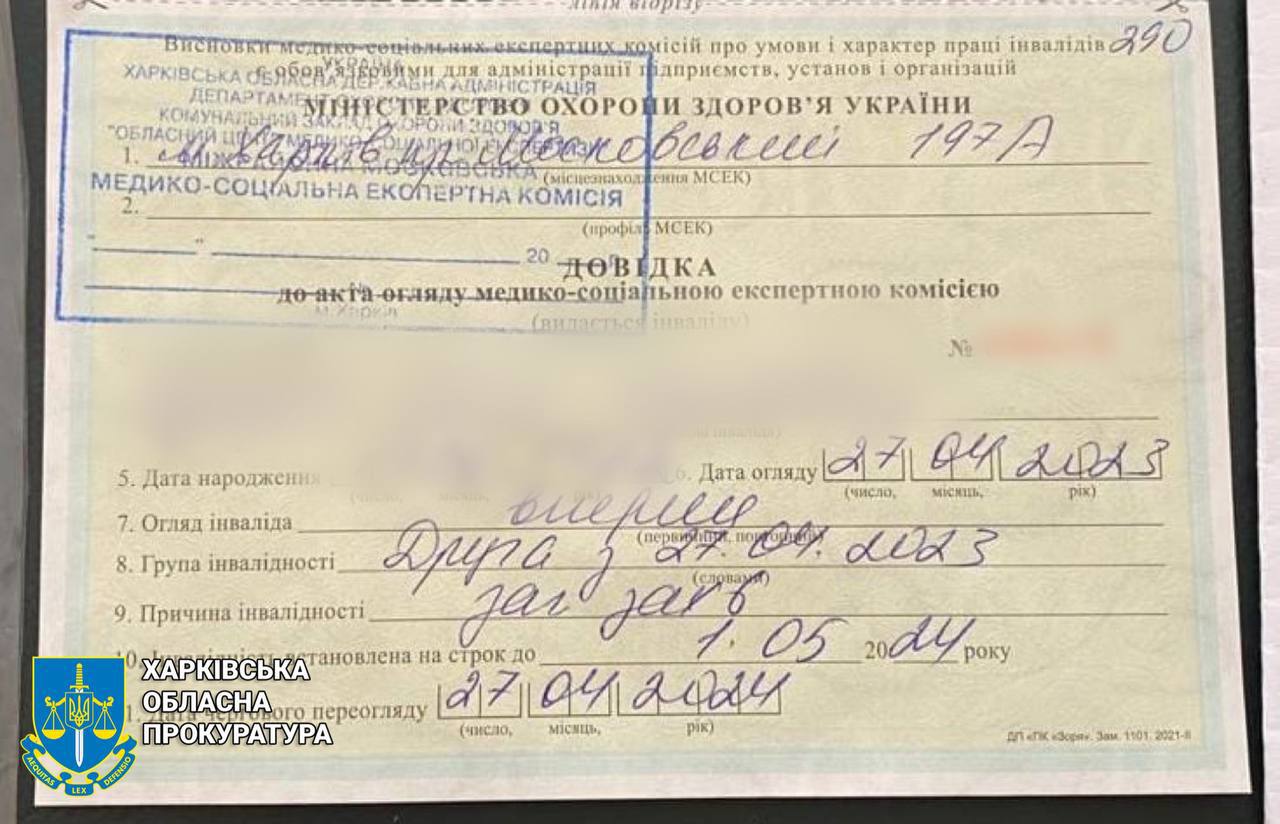 лінія відрізу
Висновки медико-соціальних експертних комісій про умови і характер праці інвалідів 290
є обов'язковими для адміністрації підприємств, установ і організацій
УКРАЇНА
ХАРКІВСЬКА ОБЛАСНА ДЕРЖАВНА АДМІНІСТРАЦІЯ
ДЕПАРТАМЕНТ ОХОРОНИ ЗДОРОВ'Я
КОМУНАЛЬНИЙ ЗАКЛАД ОХОРОНИ ЗДОРОВ'Я
"ОБЛАСНИЙ ЦЕНТР МЕДИКО-СОЦІАЛЬНОЇ ЕКСПЕРТИЗИ"
МІЖРАЙОННА МОСКОВСЬКА
МЕДИКО-СОЦІАЛЬНА ЕКСПЕРТНА КОМІСІЯ
"" 20 р.
№
м. Харків
МІНІСТЕРСТВО ОХОРОНИ ЗДОРОВ'Я УКРАЇНИ
1. м Харків пр Московський 197А
(місцезнаходження МСЕК)
2.
(профіль МСЕК)
ДОВІДКА
до акта огляду медико-соціальною експертною комісією
(видається інваліду)
№
5. Дата народження 6. Дата огляду 27 04 2023
(число, місяць, рік)
7. Огляд інваліда вперше
(первинний, повторний)
8. Група інвалідності Друга з 27.04.2023
(словами)
9. Причина інвалідності заг захв
10. Інвалідність встановлена на строк до 1. 05 2024 року
11. Дата чергового переогляду 27 04 2024
(число, місяць, рік)
ДП «ПК «Зоря». Зам. 1101. 2021-ІІ
ХАРКІВСЬКА
ОБЛАСНА
ПРОКУРАТУРА
AEQUITAS LEX DEFENSIO